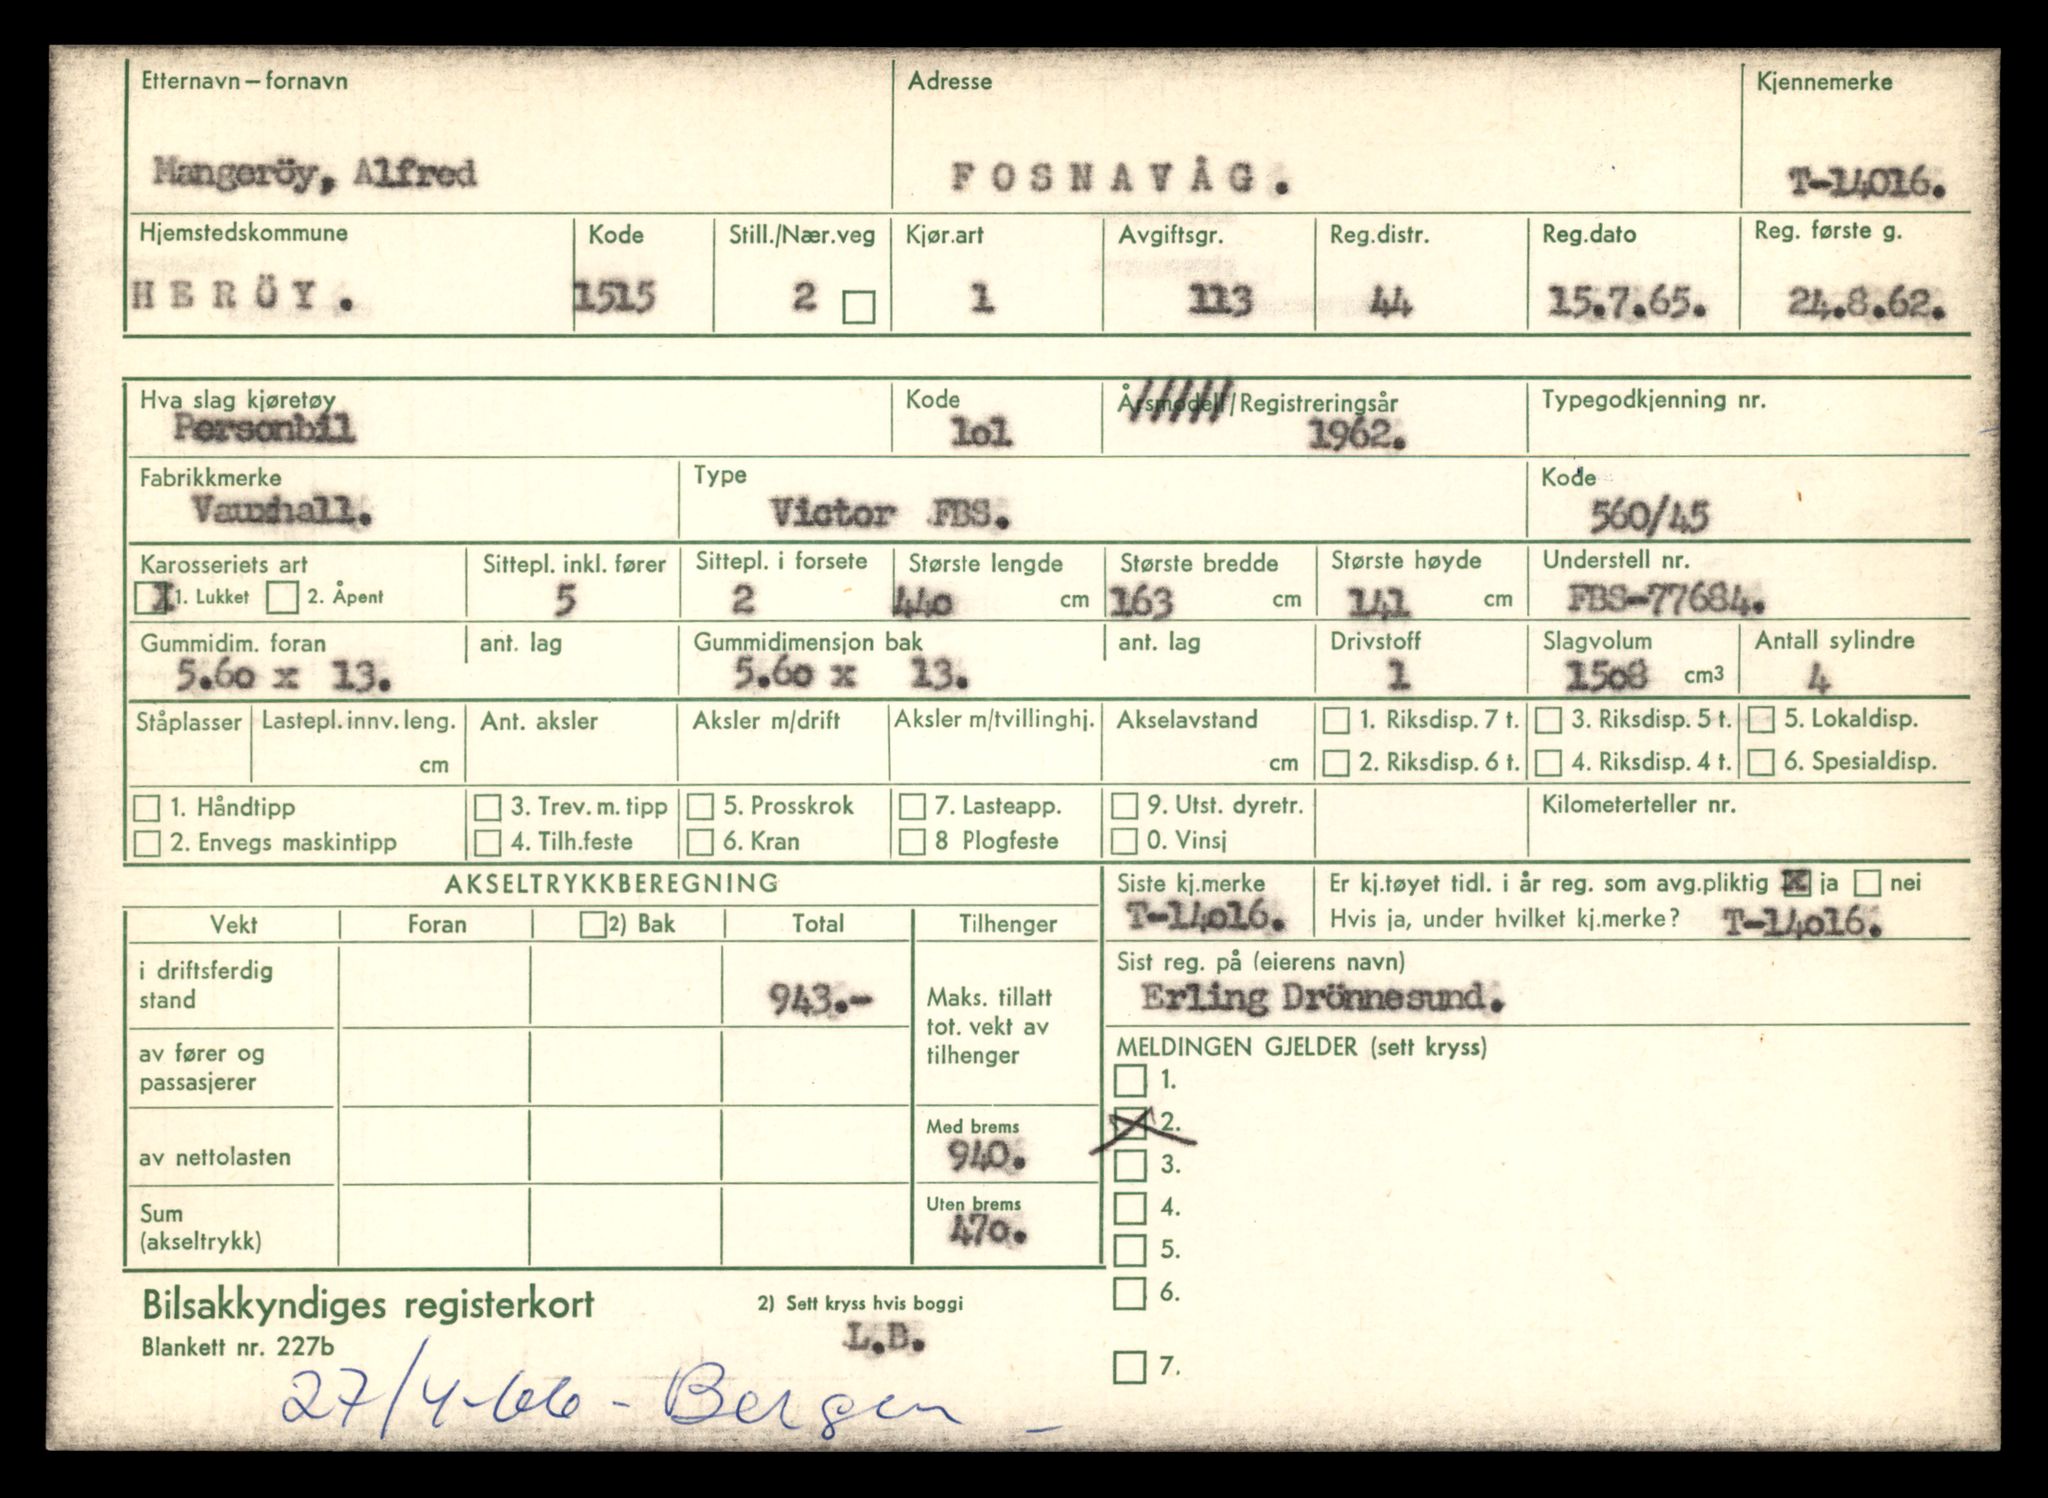 Etternavn – fornavn Adresse Kjennemerke
Mangeröy, Alfred FOSNAVÅG. T-14016.
Hjemstedskommune Kode Still./Nær.veg Kjør.art Avgiftsgr. Reg.distr. Reg.dato Reg. første g.
HERÖY. 1515 2 1 113 44 15.7.65. 24.8.62.
Hva slag kjøretøy Kode Årsmodell/Registreringsår Typegodkjenning nr.
Personbil lol 1962.
Fabrikkmerke Type Kode
Vauxhall. Victor FBS. 560/45
Karosseriets art Sittepl. inkl. fører Sittepl. i forsete Største lengde Største bredde Største høyde Understell nr.
X 1. Lukket 2. Åpent 5 2 440 cm 163 cm 141 cm FBS-77684.
Gummidim. foran ant. lag Gummidimensjon bak ant. lag Drivstoff Slagvolum Antall sylindre
5.60 x 13. 5.60 x 13. 1 1508 cm3 4
Ståplasser Lastepl. innv. leng. Ant. aksler Aksler m/drift Aksler m/tvillinghj. Akselavstand 1. Riksdisp. 7 t. 3. Riksdisp. 5 t. 5. Lokaldisp.
cm cm 2. Riksdisp. 6 t. 4. Riksdisp. 4 t. 6. Spesialdisp.
1. Håndtipp 3. Trev. m. tipp 5. Prosskrok 7. Lasteapp. 9. Utst. dyretr. Kilometerteller nr.
2. Envegs maskintipp 4. Tilh.feste 6. Kran 8 Plogfeste 0. Vinsj
AKSELTRYKKBEREGNING Siste kj.merke Er kj.tøyet tidl. i år reg. som avg.pliktig x ja nei
T-14016. Hvis ja, under hvilket kj.merke? T-14016.
Vekt Foran 2) Bak Total Tilhenger
Sist reg. på (eierens navn)
Erling Drönnesund.
i driftsferdig stand 943.-
Maks. tillatt tot. vekt av tilhenger
av fører og passasjerer
MELDINGEN GJELDER (sett kryss)
1.
X 2.
3.
4.
5.
6.
7.
av nettolasten
Med brems
940.
Sum (akseltrykk)
Uten brems
470.
Bilsakkyndiges registerkort 2) Sett kryss hvis boggi
Blankett nr. 227b L.B.
27/4-66 - Bergen -